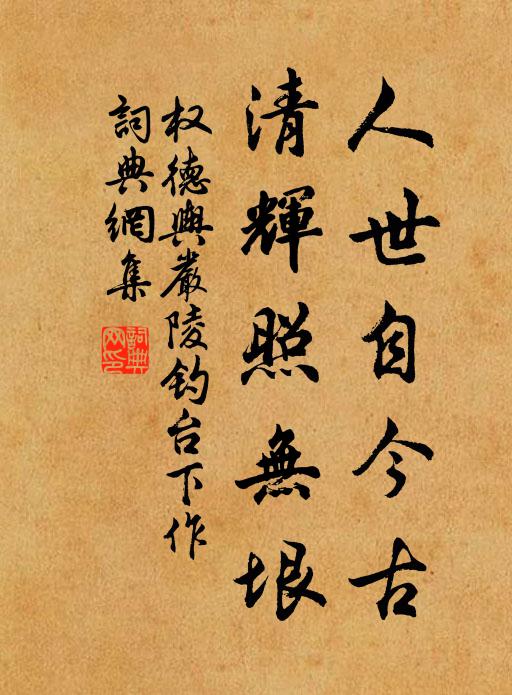 人世自今古
清輝照無垠
权德輿嚴陵钓台下作
詞典網集
詞典网印